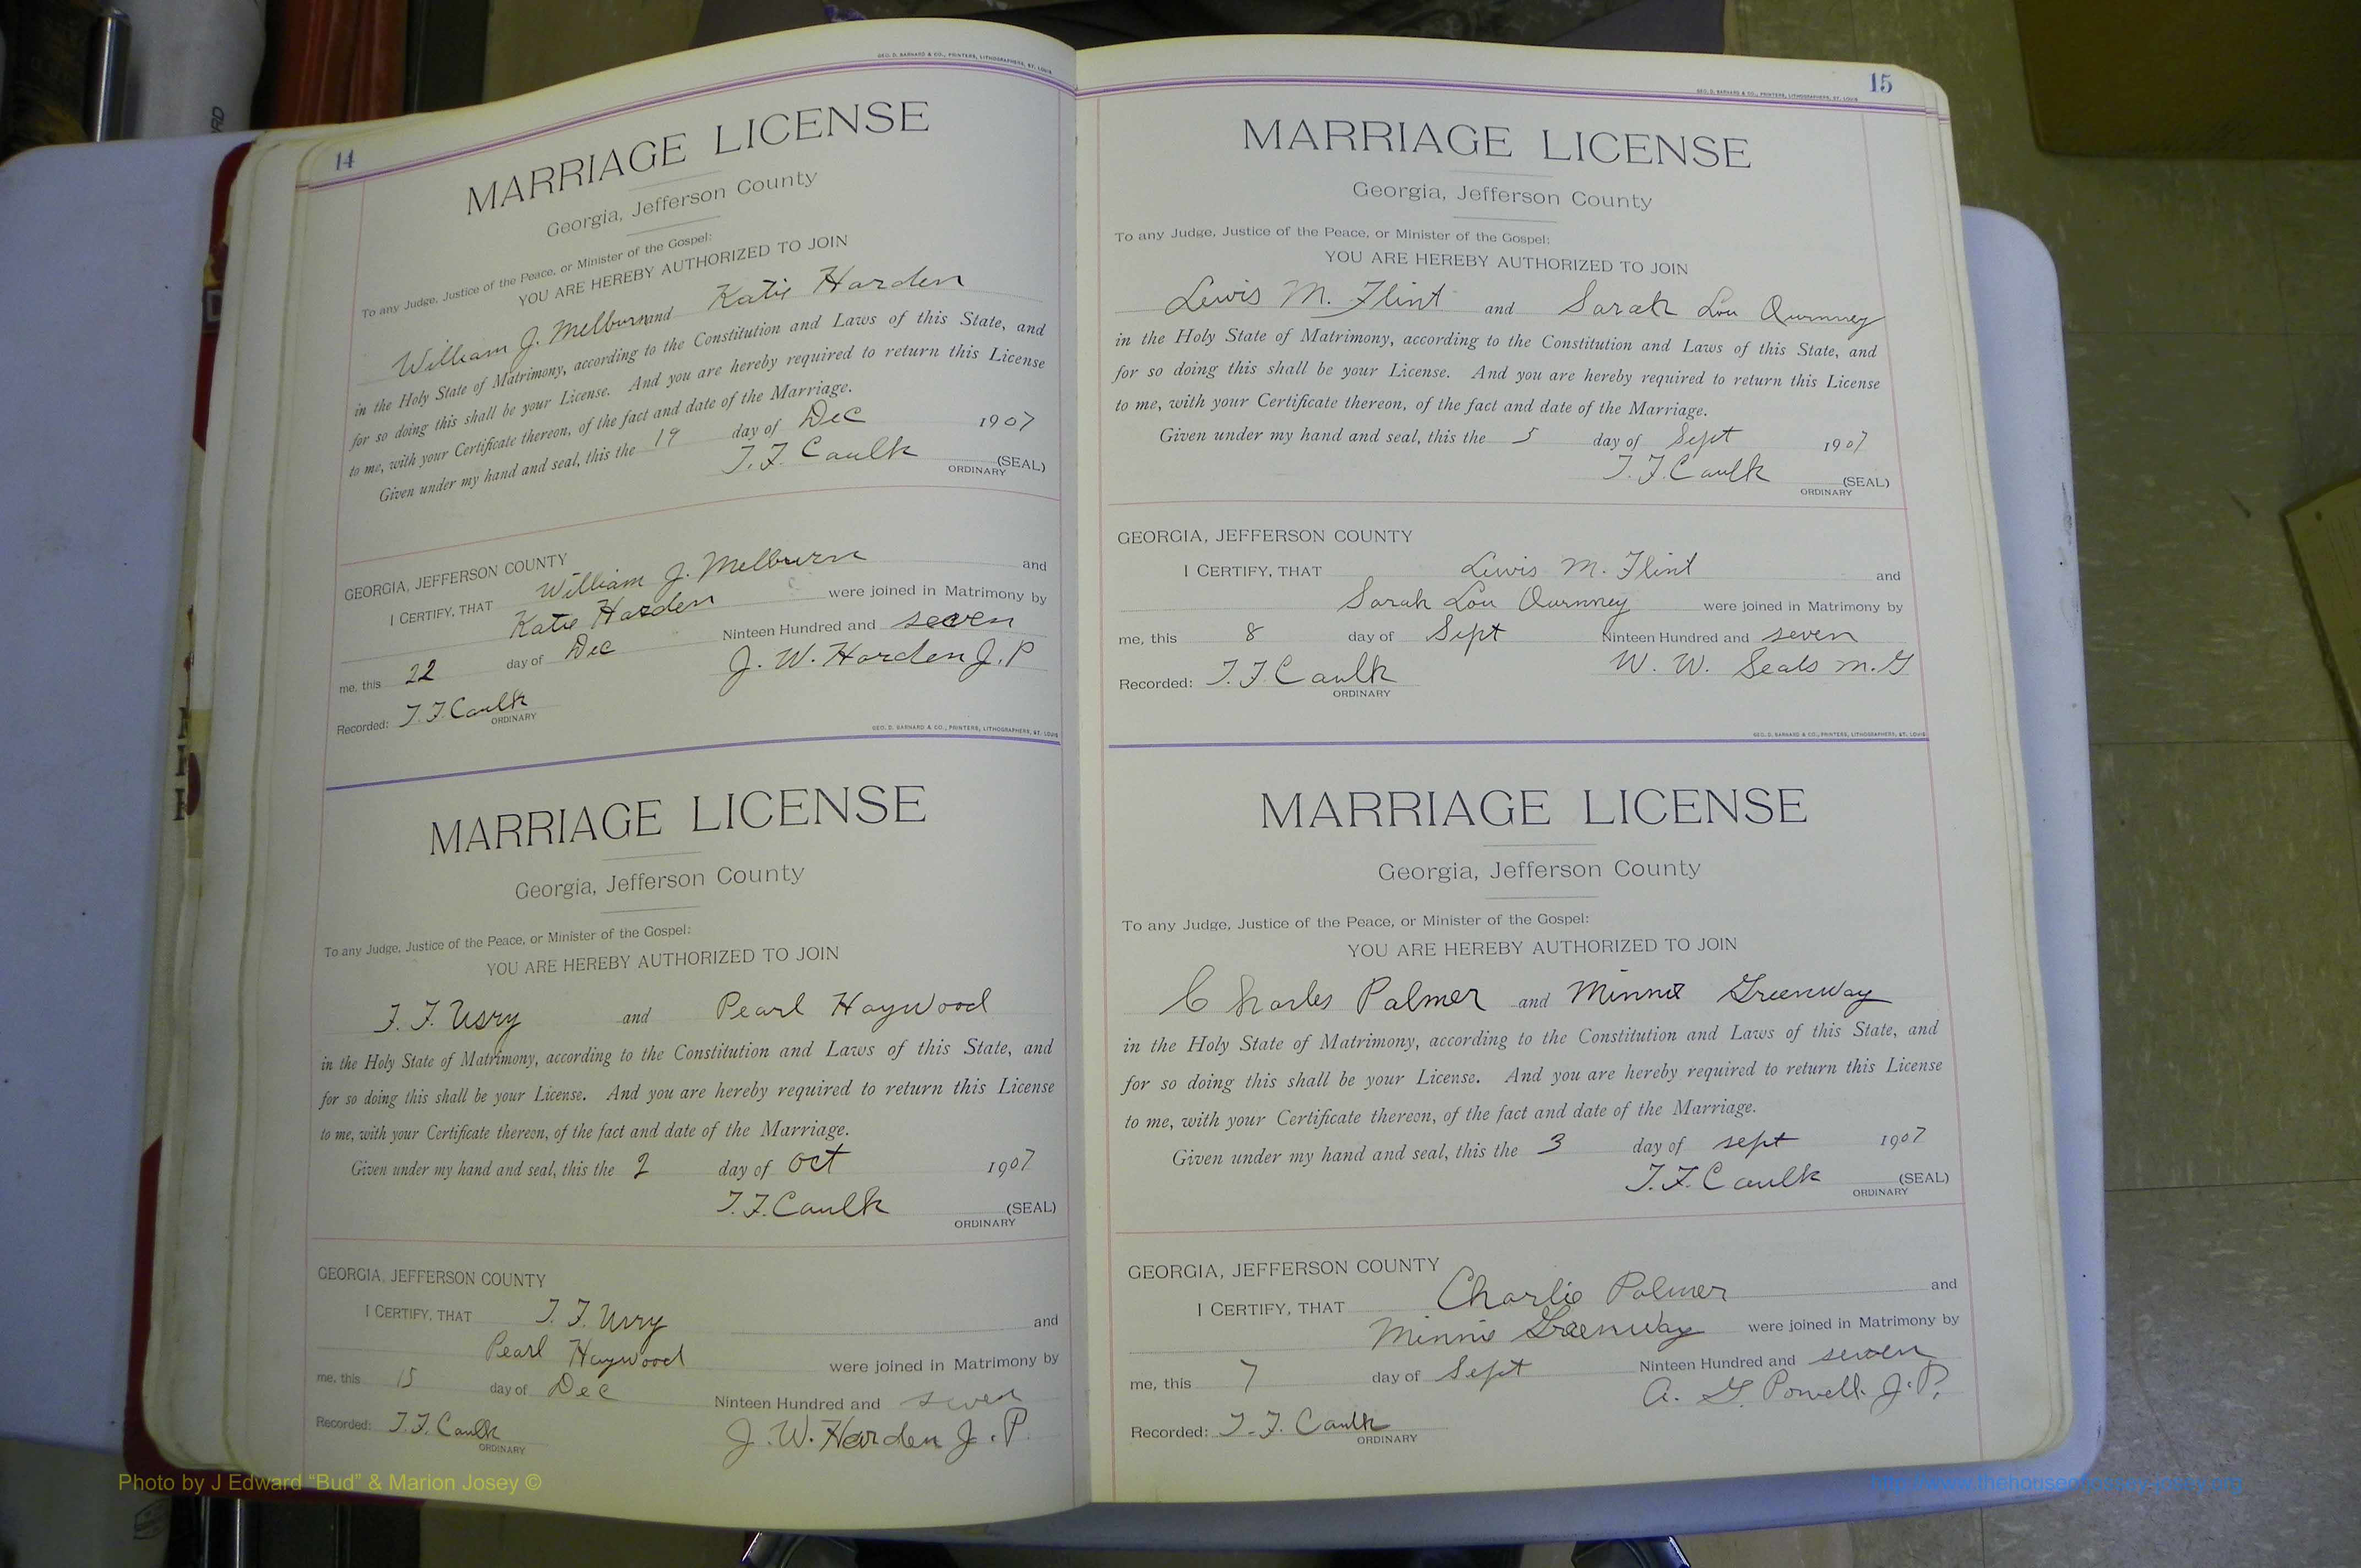 14
GEO. D. BARNARD & CO., PRINTERS, LITHOGRAPHERS, ST. LOUIS
MARRIAGE LICENSE
Georgia, Jefferson County
To any Judge, Justice of the Peace, or Minister of the Gospel:
YOU ARE HEREBY AUTHORIZED TO JOIN
William J. Melburn and Katie Harden
in the Holy State of Matrimony, according to the Constitution and Laws of this State, and
for so doing this shall be your License. And you are hereby required to return this License
to me, with your Certificate thereon, of the fact and date of the Marriage.
Given under my hand and seal, this the 19 day of Dec 1907
T. F. Caulk (SEAL)
ORDINARY
GEORGIA, JEFFERSON COUNTY
I CERTIFY, THAT William J. Melburn and
Katie Harden were joined in Matrimony by
me, this 22 day of Dec Ninteen Hundred and seven
J. W. Harden J.P
Recorded: T. F. Caulk
ORDINARY
GEO. D. BARNARD & CO., PRINTERS, LITHOGRAPHERS, ST. LOUIS
MARRIAGE LICENSE
Georgia, Jefferson County
To any Judge, Justice of the Peace, or Minister of the Gospel:
YOU ARE HEREBY AUTHORIZED TO JOIN
T. F. Usry and Pearl Haywood
in the Holy State of Matrimony, according to the Constitution and Laws of this State, and
for so doing this shall be your License. And you are hereby required to return this License
to me, with your Certificate thereon, of the fact and date of the Marriage.
Given under my hand and seal, this the 2 day of Oct 1907
T. F. Caulk (SEAL)
ORDINARY
GEORGIA, JEFFERSON COUNTY
I CERTIFY, THAT T. F. Usry and
Pearl Haywood were joined in Matrimony by
me, this 15 day of Dec Ninteen Hundred and seven
J. W. Harden J.P.
Recorded: T. F. Caulk
ORDINARY
15
GEO. D. BARNARD & CO., PRINTERS, LITHOGRAPHERS, ST. LOUIS
MARRIAGE LICENSE
Georgia, Jefferson County
To any Judge, Justice of the Peace, or Minister of the Gospel:
YOU ARE HEREBY AUTHORIZED TO JOIN
Lewis M. Flint and Sarah Lou
in the Holy State of Matrimony, according to the Constitution and Laws of this State, and
for so doing this shall be your License. And you are hereby required to return this License
to me, with your Certificate thereon, of the fact and date of the Marriage.
Given under my hand and seal, this the 5 day of Sept 1907
T. F. Caulk (SEAL)
ORDINARY
GEORGIA, JEFFERSON COUNTY
I CERTIFY, THAT Lewis M. Flint and
Sarah Lou were joined in Matrimony by
me, this 8 day of Sept Ninteen Hundred and seven
W. W. Seals M.G
Recorded: T. F. Caulk
ORDINARY
GEO. D. BARNARD & CO., PRINTERS, LITHOGRAPHERS, ST. LOUIS
MARRIAGE LICENSE
Georgia, Jefferson County
To any Judge, Justice of the Peace, or Minister of the Gospel:
YOU ARE HEREBY AUTHORIZED TO JOIN
Charles Palmer and Minnie Greenway
in the Holy State of Matrimony, according to the Constitution and Laws of this State, and
for so doing this shall be your License. And you are hereby required to return this License
to me, with your Certificate thereon, of the fact and date of the Marriage.
Given under my hand and seal, this the 3 day of sept 1907
T. F. Caulk (SEAL)
ORDINARY
GEORGIA, JEFFERSON COUNTY
I CERTIFY, THAT Charlie Palmer and
Minnie Greenway were joined in Matrimony by
me, this 7 day of Sept Ninteen Hundred and seven
A. G. Powell J.P.
Recorded: T. F. Caulk
ORDINARY
Photo by J Edward “Bud” & Marion Josey ©